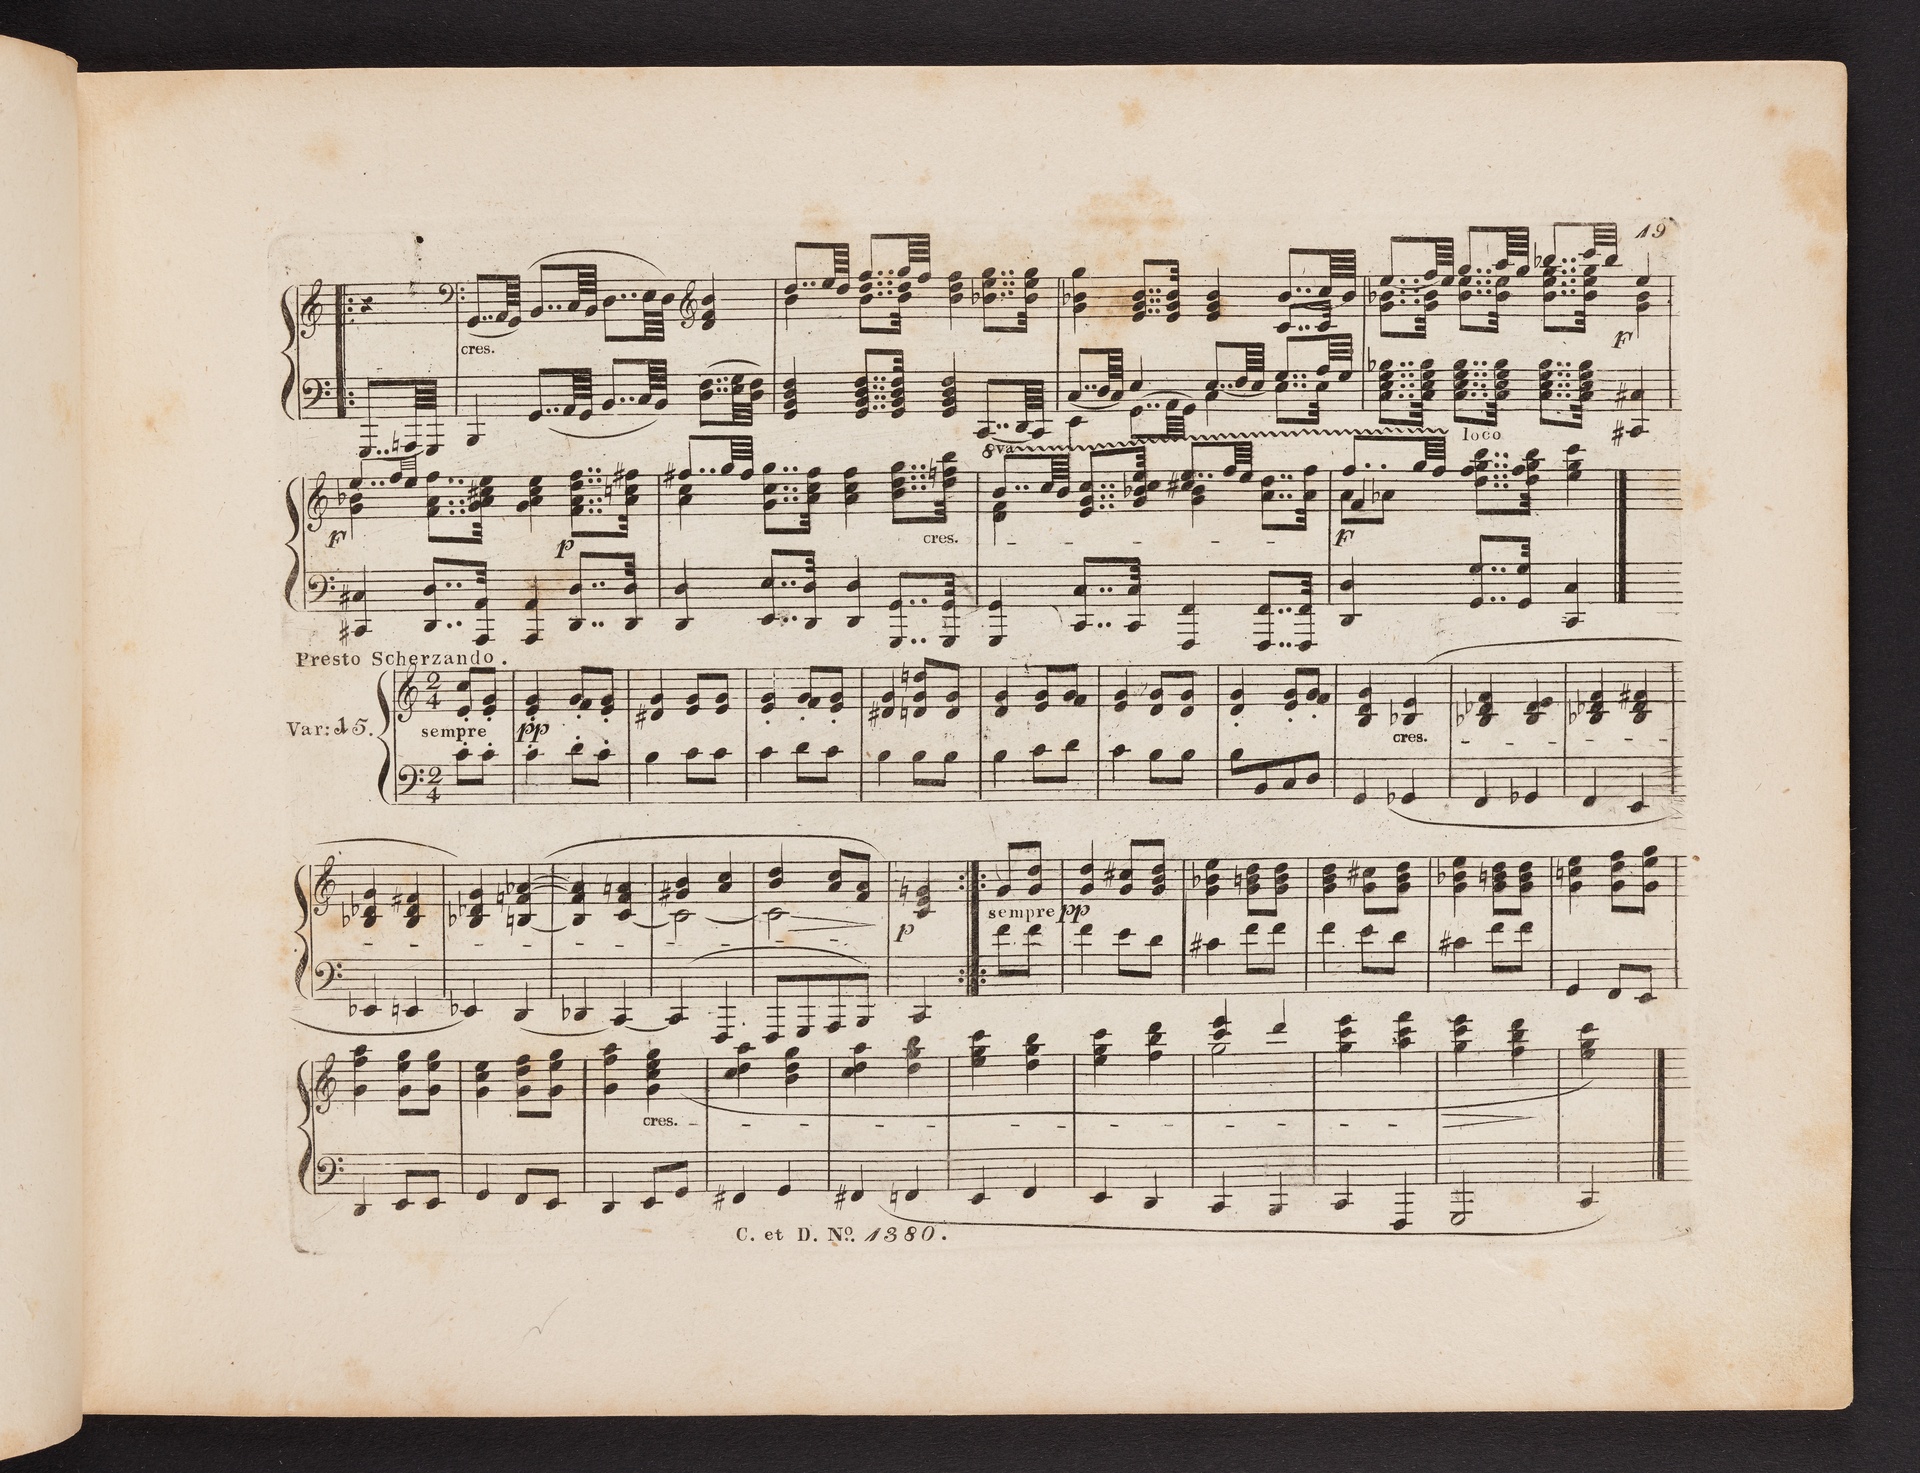 19
cres.
F
8va loco
F p cres. F
Presto Scherzando.
2 4
Var: 15. sempre pp cres.
2 4
p sempre pp
cres.
C. et D. No. 1380.